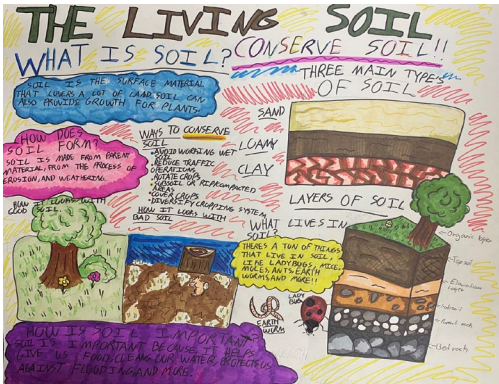 THE LIVING SOIL
WHAT IS SOIL?
CONSERVE SOIL!!
SOIL IS THE SURFACE MATERIAL
THAT COVERS A LOT OF LAND. SOIL CAN
ALSO PROVIDE GROWTH FOR PLANTS.
THREE MAIN TYPES
OF SOIL
SAND
LOAMY
CLAY
HOW DOES
SOIL FORM?
SOIL IS MADE FROM PARENT
MATERIAL, FROM THE PROCESS OF
EROSION, AND WEATHERING.
WAYS TO CONSERVE
SOIL
AVOID WORKING WET
SOIL
REDUCE TRAFFIC
OPERATIONS
ROTATE CROPS
SUBSOIL OR RIP COMPACTED
AREAS
COVER CROPS
DIVERSIFY CROPPING SYSTEM
HOW IT LOOKS WITH
GOOD SOIL
HOW IT LOOKS WITH
BAD SOIL
WHAT LIVES IN
SOIL?
THERES A TON OF THINGS
THAT LIVE IN SOIL,
LIKE LADYBUGS, MICE,
MOLES, ANTS, EARTH
WORMS AND MORE!!
EARTH
WORM
LADY
BUG
LAYERS OF SOIL
Organic layer
Topsoil
Layer
Subsoil
Parent rock
Bedrock
HOW IS SOIL IMPORTANT?
SOIL IS IMPORTANT BECAUSE IT HELPS
GIVE US FOOD, CLEANS OUR WATER, PROTECTS US
AGAINST FLOODING AND MORE.